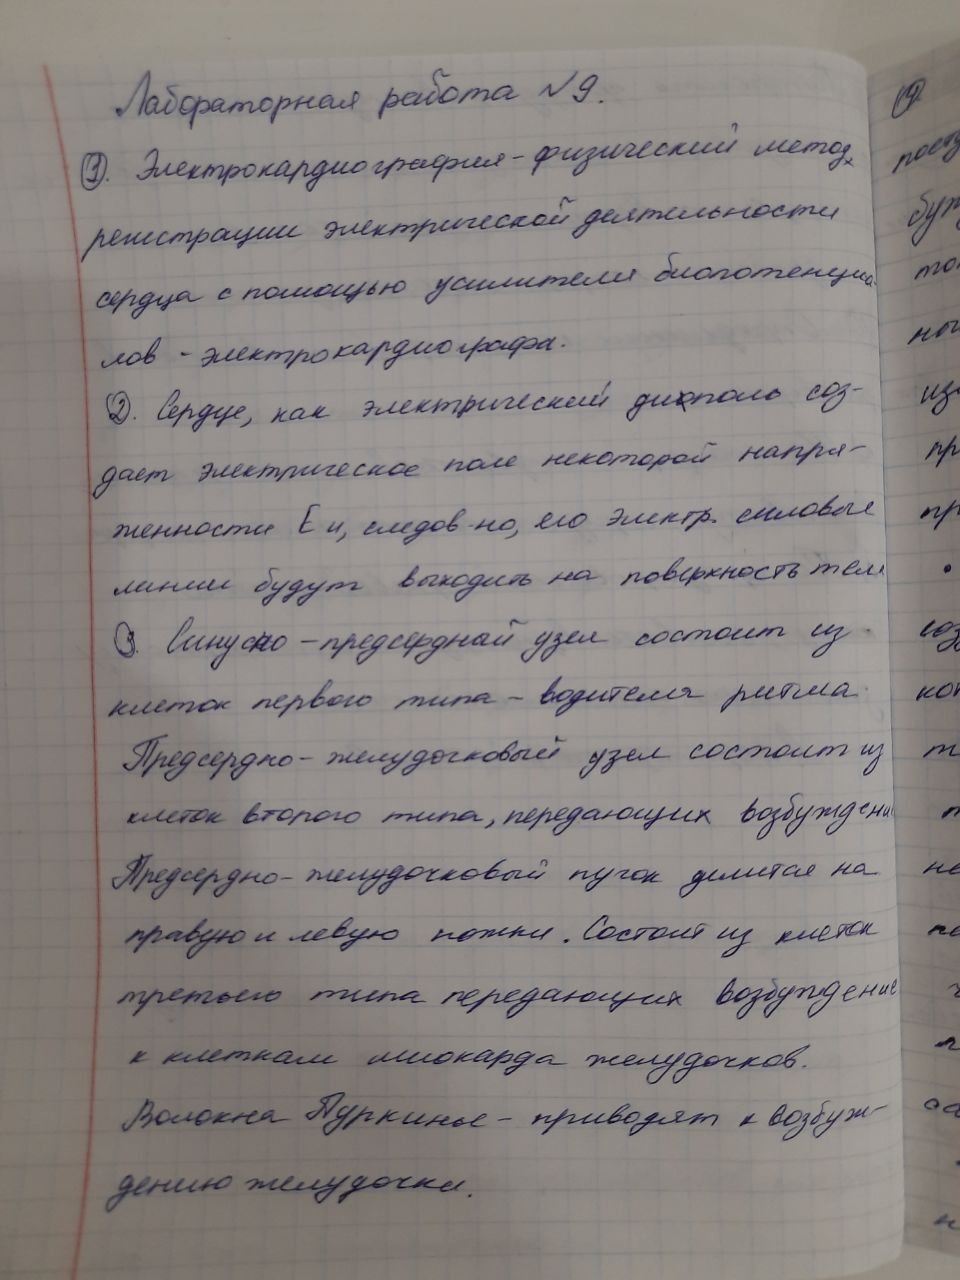 Лабораторная работа №9.
1. Электрокардиография - физический метод
регистрации электрической деятельности
сердца с помощью усилителя биопотенциа-
лов - электрокардиографа.
2. Сердце, как электрический диполь соз-
дает электрическое поле некоторой напря-
женности E и, следов-но, его электр. силовые
линии будут выходить на поверхность тела
3. Синусно-предсердный узел состоит из
клеток первого типа - водителя ритма.
Предсердно-желудочковый узел состоит из
клеток второго типа, передающих возбуждение
Предсердно-желудочковый пучок делится на
правую и левую ножки. Состоит из клеток
третьего типа передающих возбуждение
к клеткам миокарда желудочков.
Волокна Пуркинье - приводят к возбуж-
дению желудочки.